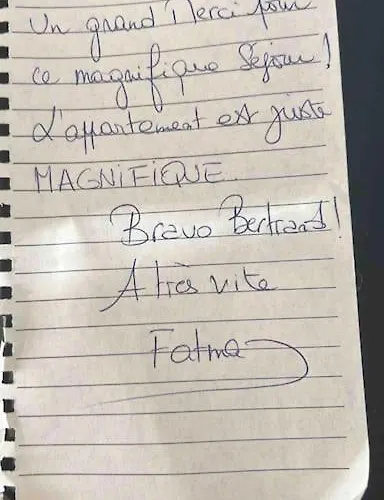 Un grand Merci pour
ce magnifique Séjour!
L'appartement est juste
MAGNIFIQUE
Bravo Bertrand!
A très vite
Fatma